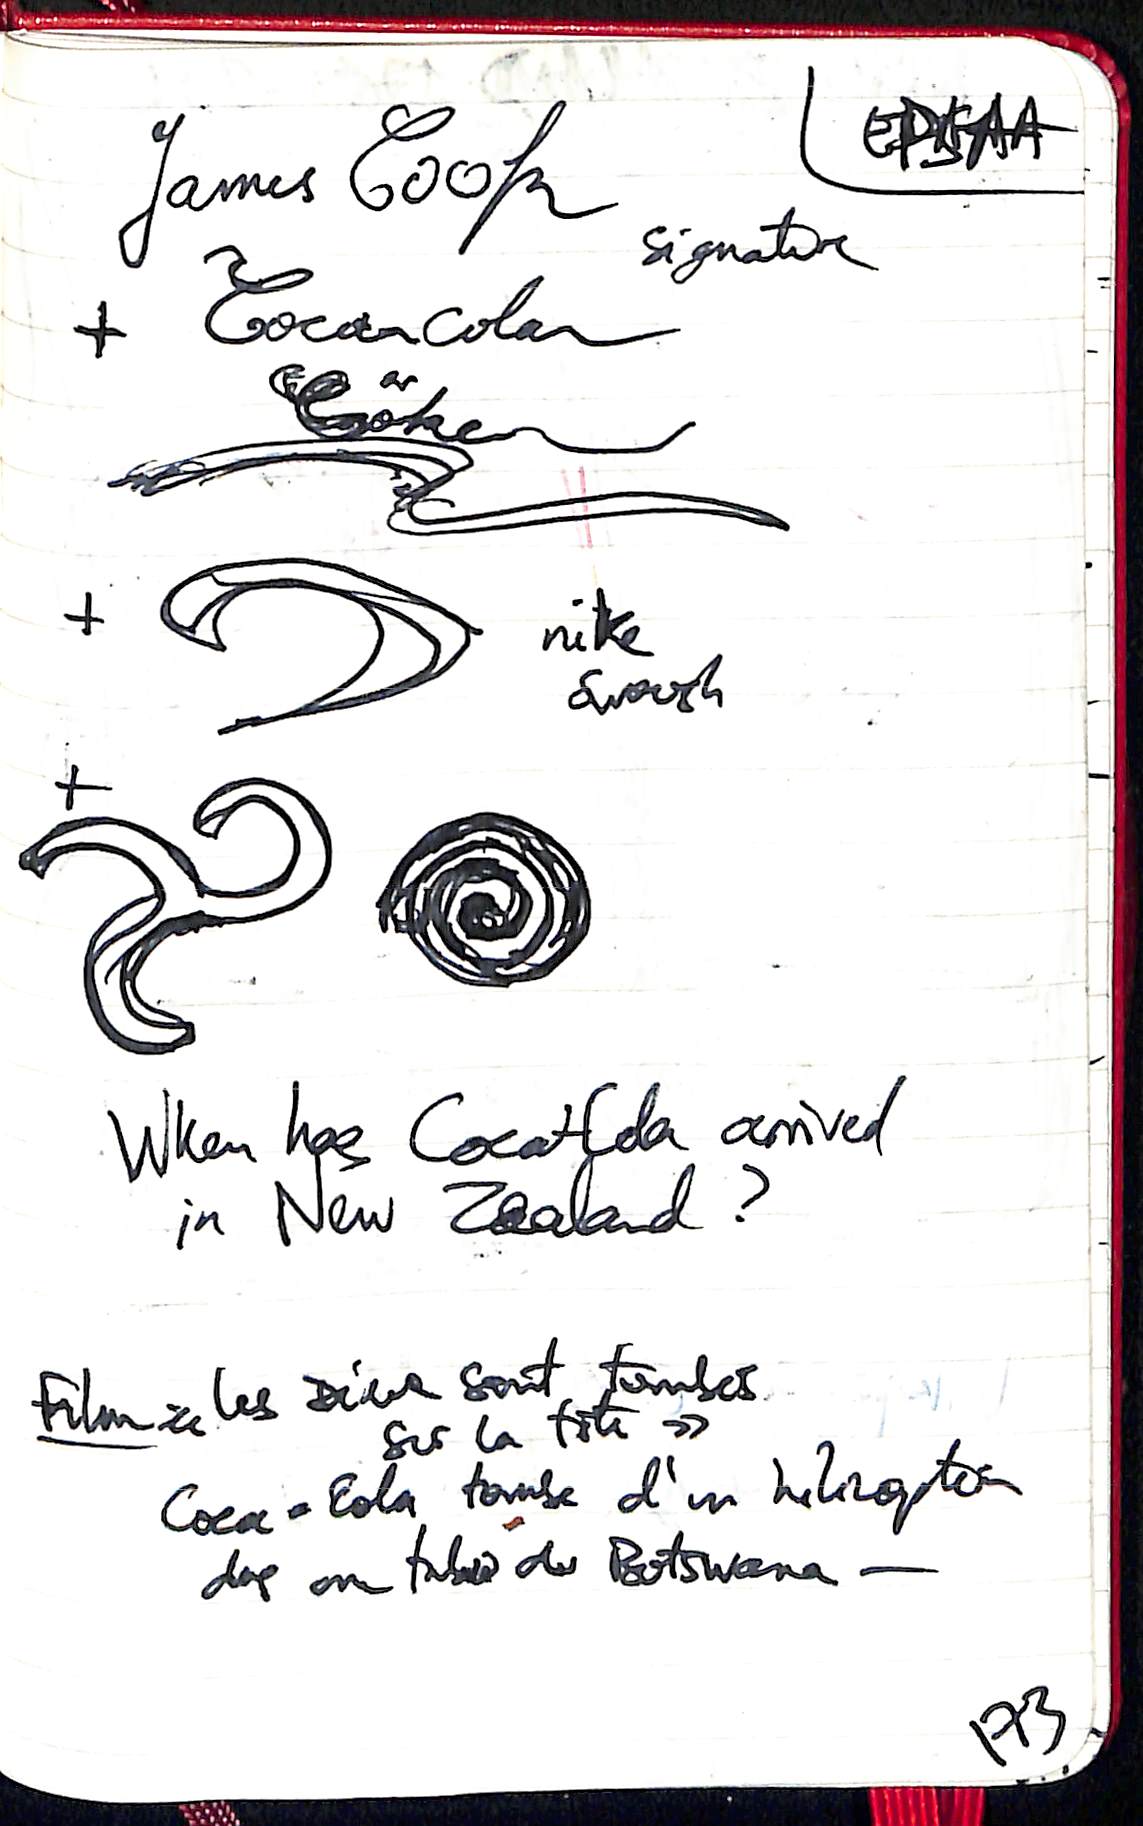 EPSAA
James Cook
signature
+ Coca cola
Coke
+ nike
swoosh
+
When has Coca Cola arrived
in New Zealand ?
Film : « les Dieux sont tombés
sur la tête »
Coca-Cola tombe d'un hélicoptère
dans une tribu du Botswana —
173